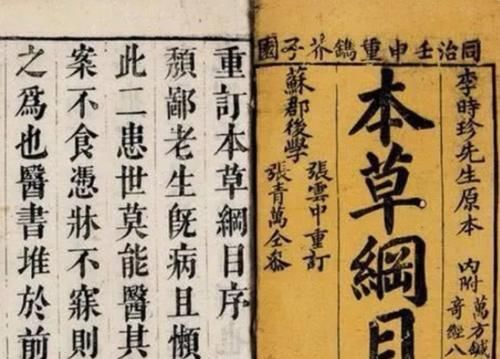 同治壬申重鐫芥子園
李時珍先生原本
內附萬方鍼
奇經八
本草綱目
張雲中重訂
蘇郡後學
張青萬仝參
重訂本草綱目序
頽鄙老生旣病且懶
此二患世莫能醫其
案不食憑牀不寐則
之爲也醫書堆於前